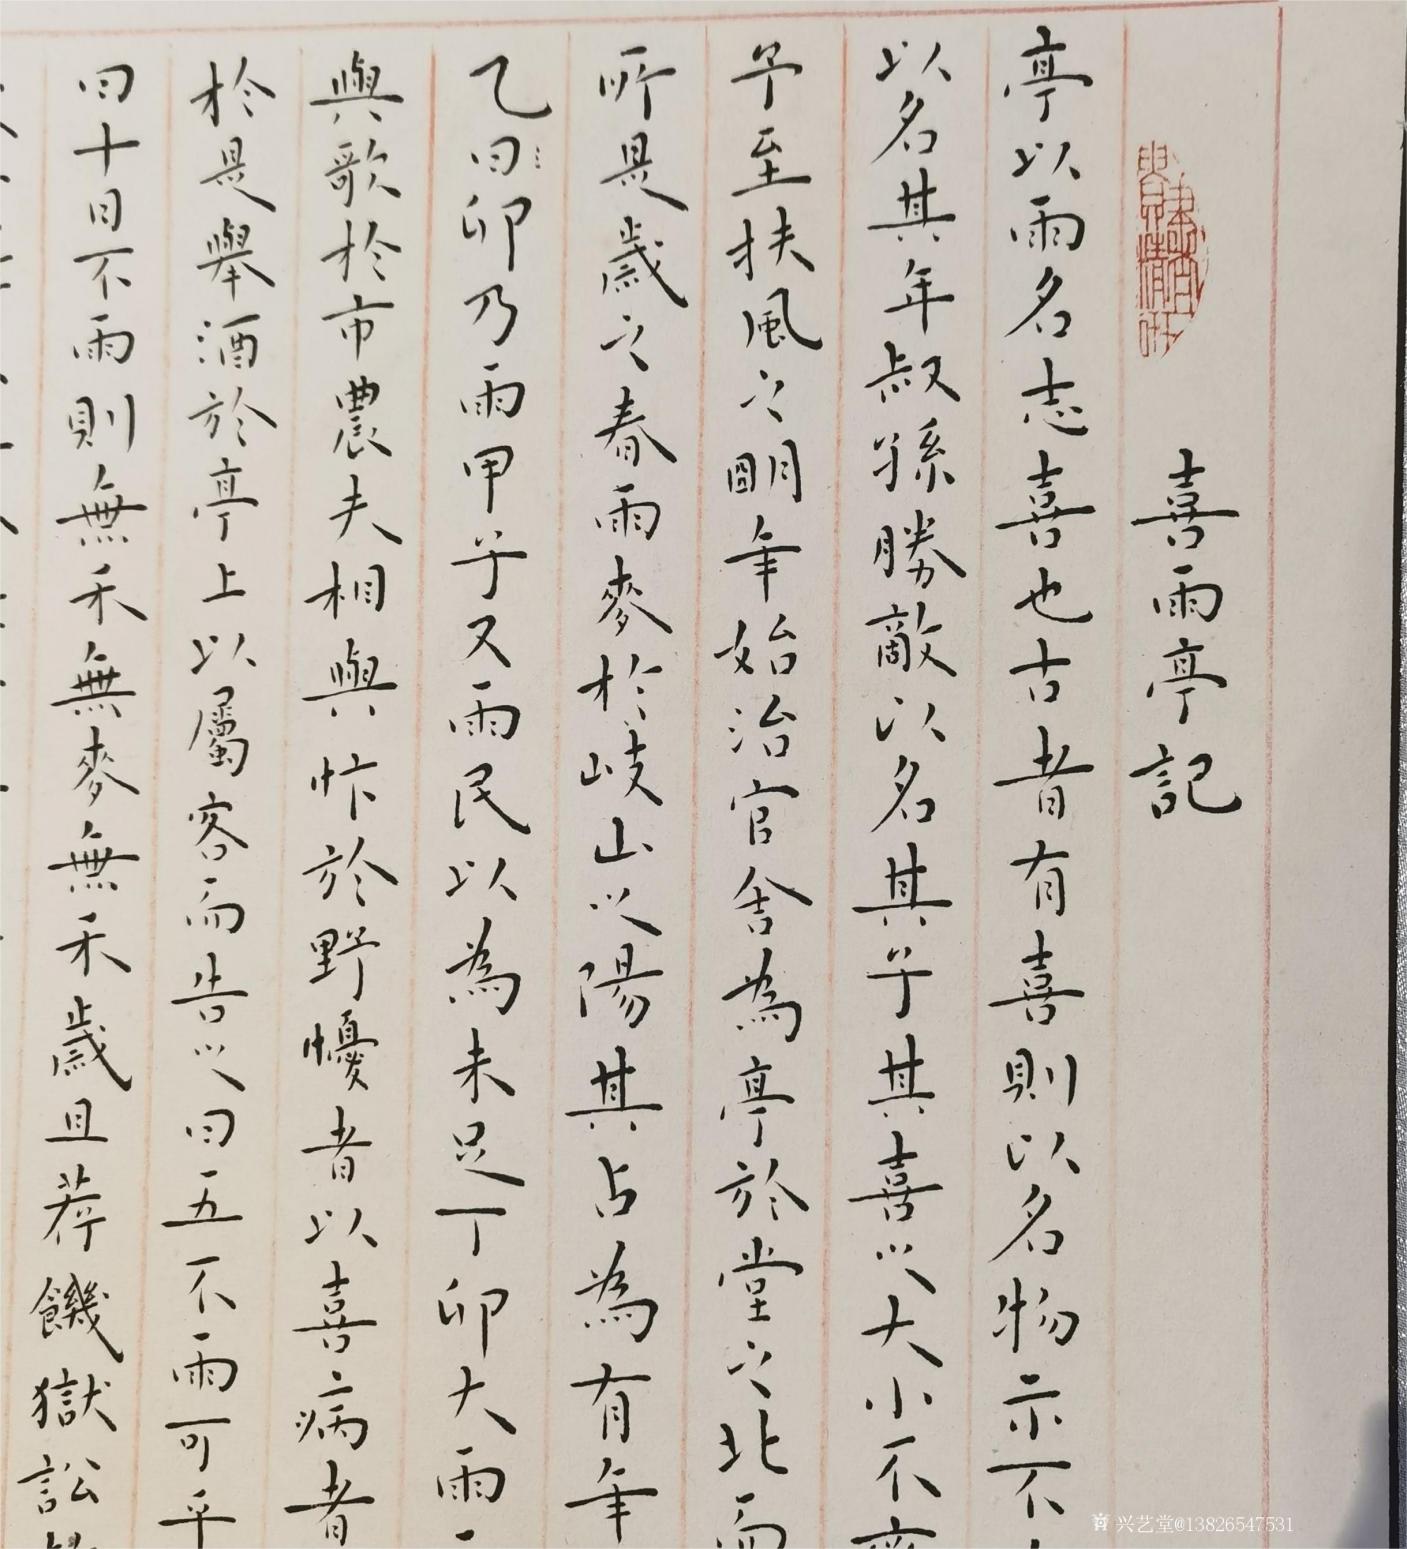 喜雨亭記
亭以雨名志喜也古者有喜則以名物示不
以名其年叔孫勝敵以名其子其喜之大小不齊
予至扶風之明年始治官舍為亭於堂之北而
所是歲之春雨麥於岐山之陽其占為有年
乙曰卯乃雨甲子又雨民以為未足丁卯大雨
與歌於市農夫相與忭於野懮者以喜病者
於是舉酒於亭上以屬客而告之曰五不雨可乎
曰十日不雨則無禾無麥無禾歲且荐饑獄訟
兴艺堂@13826547531